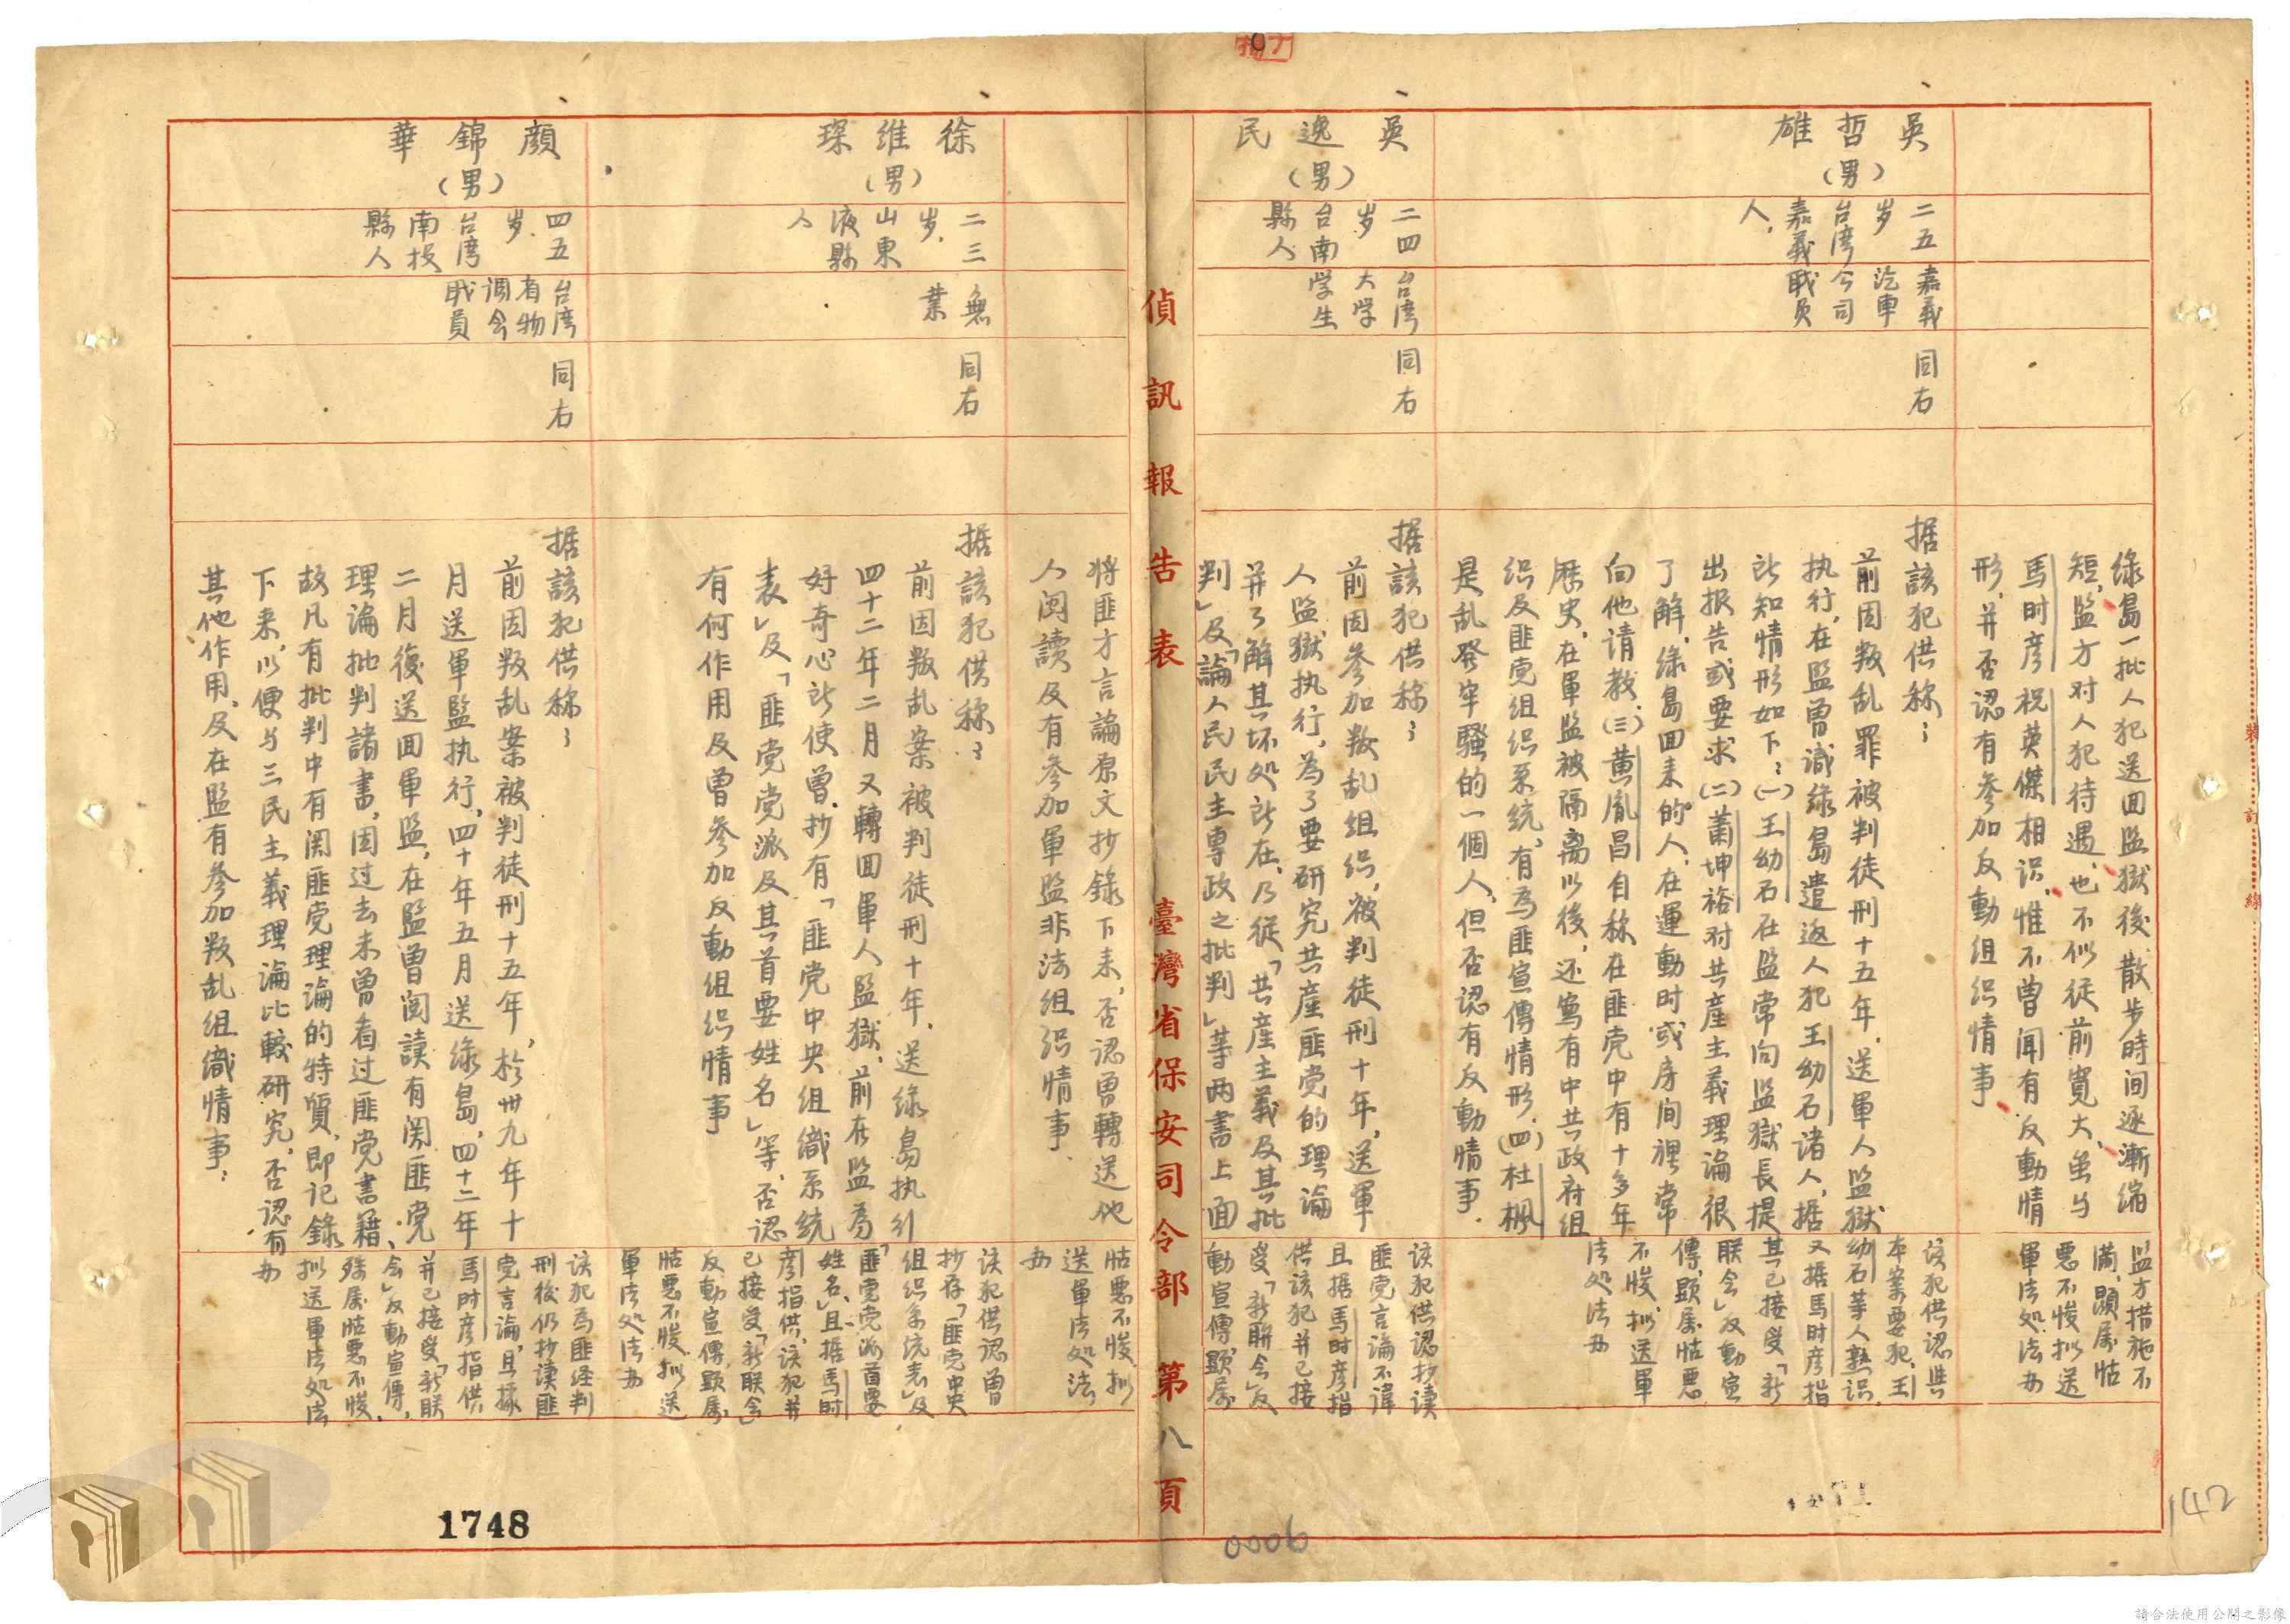 綠島一批人犯送囬監獄後,散步時间逐漸缩
短,監方对人犯待遇,也不似從前寬大,虽与
馬时彦祝英傑相识,惟不曾聞有反動情
形,并否認有參加反動組织情事
監方措施不
滿,顕属怙
惡不悛拟送
軍法処法办
吳哲雄
(男)
二五
岁
台湾
嘉義
人,
嘉義
汽車
公司
职员
同右
据該犯供称:
前因叛乱罪被判徒刑十五年,送軍人監獄
执行,在監曾識綠島遣返人犯王幼石諸人,据
所知情形如下:(一)王幼石在監常向監獄長提
出报告或要求(二)蕭坤裕对共產主義理論很
了解,綠島囬来的人,在運動时或房间裡常
向他请教,(三)黄胤昌自称在匪党中有十多年
歷史,在軍監被隔离以後,还寫有中共政府組
织及匪党組织系统,有為匪宣傳情形,(四)杜楓
是乱發牢騷的一個人,但否認有反動情事.
该犯供認与
本案要犯,王
幼石等人熟识
又据馬时彦指
其已接受「新
联会」反動宣
傳,顕属怙惡
不悛,拟送軍
法処法办
吳逸民
(男)
二四
岁
台南
縣人
台湾
大学
学生
同右
据該犯供称:
前因參加叛乱組织,被判徒刑十年,送軍
人監獄执行,為了要研究共產匪党的理論
并了解其坏処所在,乃從「共產主義及其批
判」及「論人民民主專政之批判」等两書上面
该犯供認抄读
匪党言論不諱
且据馬时彦指
供该犯并已接
受「新联会」反
動宣傳,顕属
偵訊報告表 臺灣省保安司令部 第八頁
將匪方言論原文抄錄下来,否認曾轉送他
人阅讀及有參加軍監非法組织情事.
怙惡不悛,拟
送軍法処法
办
徐維琛
(男)
二三
岁,
山東
液縣
人
無
業
同右
据該犯供称:
前因叛乱案被判徒刑十年,送綠島执行
四十二年二月又轉囬軍人監獄,前在監為
好奇心所使曾抄有「匪党中央組織系统
表」及「匪党党派及其首要姓名」等,否認
有何作用及曾參加反動組织情事
该犯供認曾
抄存「匪党中央
組织系统表」及
「匪党党派首要
姓名」,且据馬时
彦指供,该犯并
已接受「新联会」
反動宣傳,顕属
怙惡不悛拟送
軍法処法办
顏錦華
(男)
四五
岁,
台湾
南投
縣人
台湾
省物
调会
职員
同右
据該犯供称:
前因叛乱案被判徒刑十五年,於卅九年十
月送軍監执行,四十年五月送綠島,四十二年
二月復送囬軍監,在監曾阅读有関匪党
理論批判諸書,因过去未曾看过匪党書籍,
故凡有批判中有関匪党理論的特質,即记錄
下来,以便与三民主義理論比較研究,否認有
其他作用,及在監有參加叛乱組織情事:
该犯為匪经判
刑後仍抄读匪
党言論,且據
馬时彦指供
并已接受「新联
会」反動宣傳,
殊属怙惡不悛,
拟送軍法処法
办
1748
0006
142
裝訂線
請合法使用公開之影像